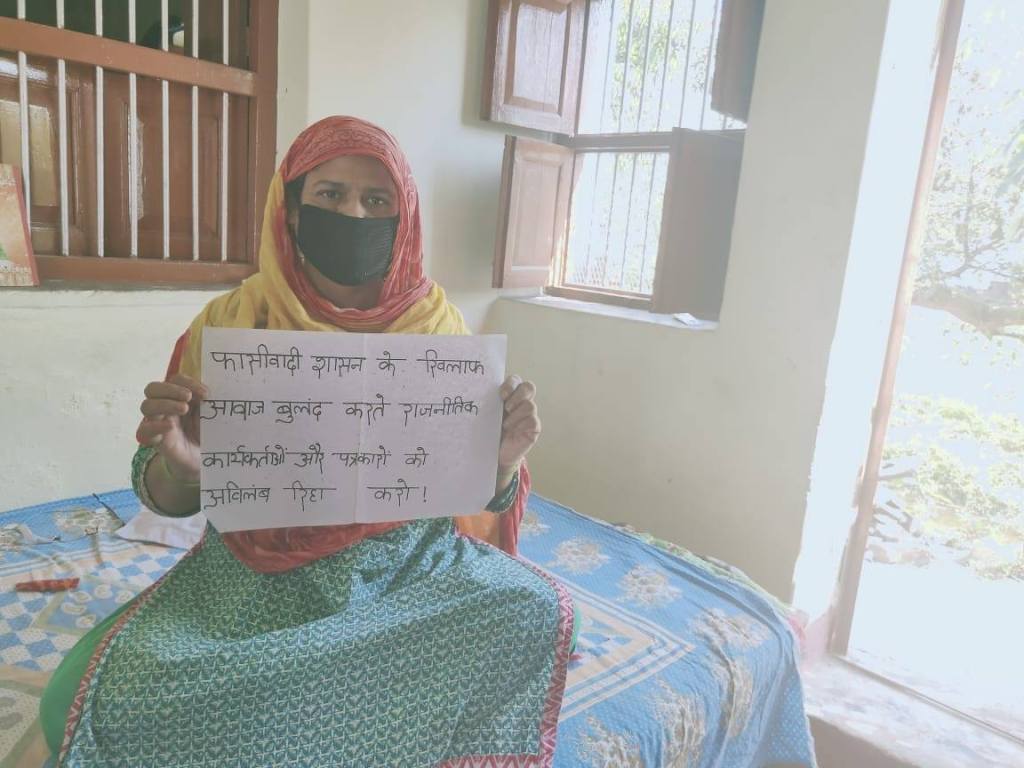 फासीवादी शासन के खिलाफ
आवाज बुलंद करते राजनीतिक
कार्यकर्ताओं और पत्रकारों को
अविलंब रिहा करो!